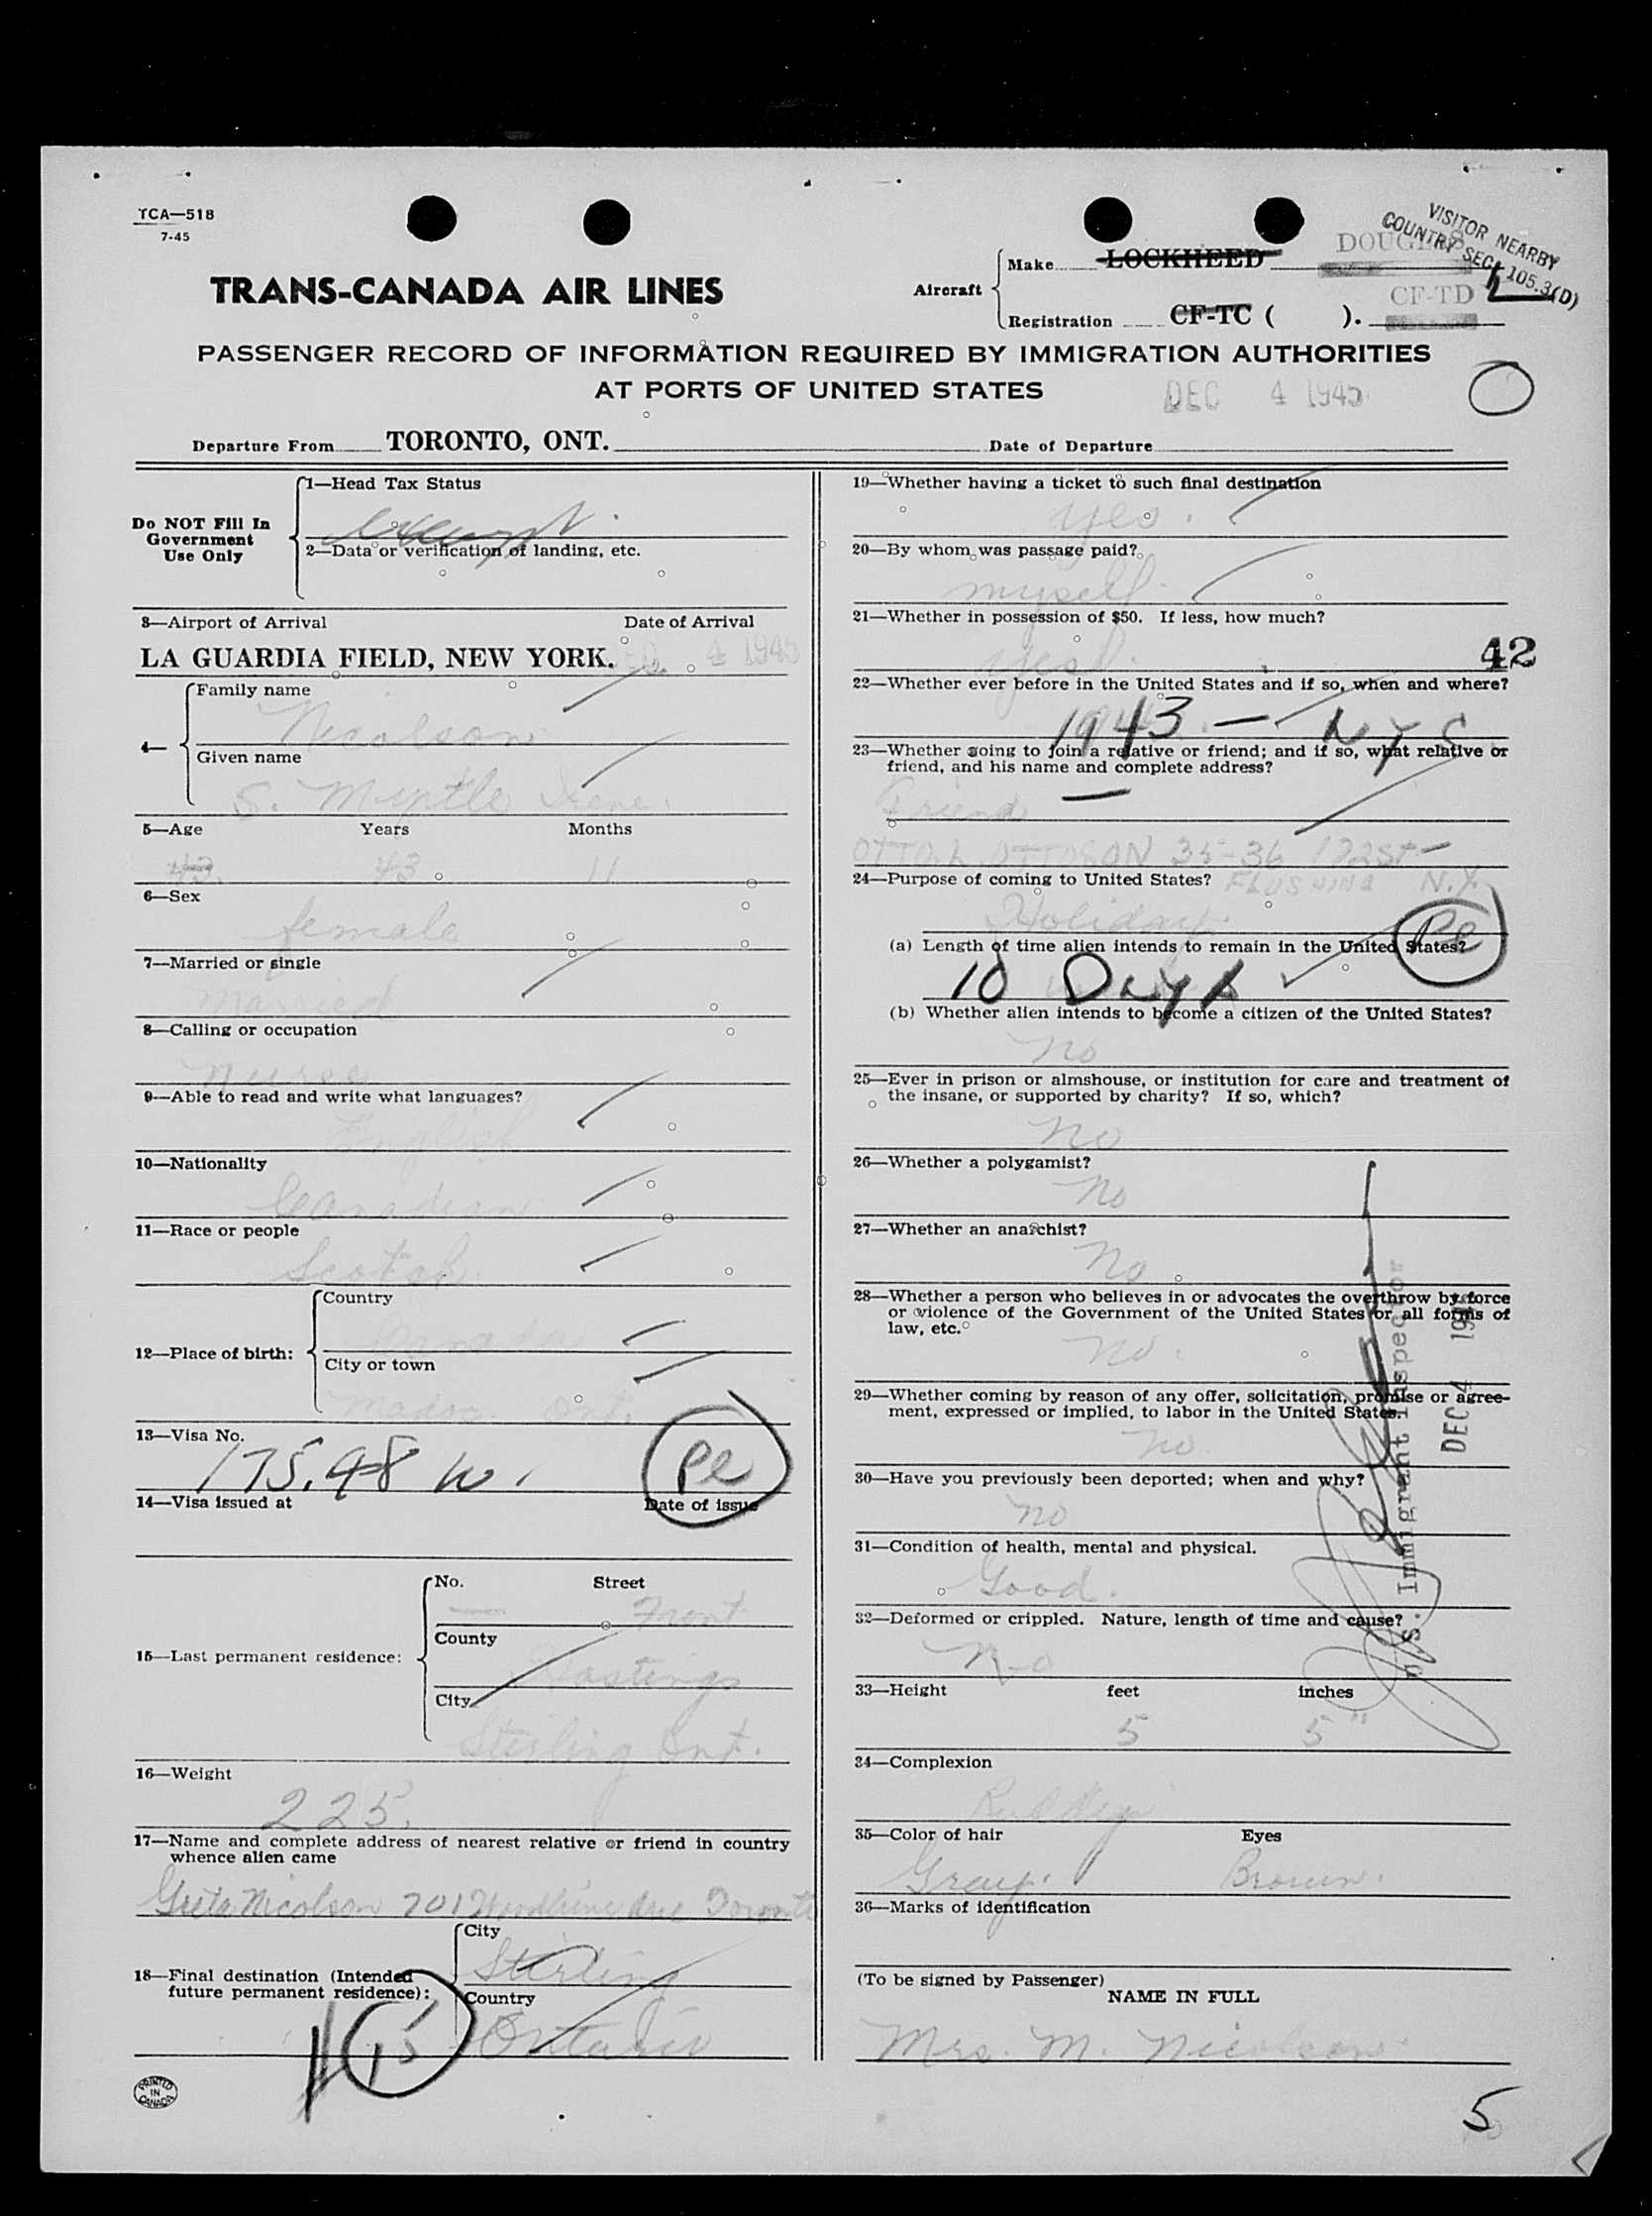 TCA—518
7-45
VISITOR NEARBY
COUNTRY SEC. 105.3(D)
TRANS-CANADA AIR LINES
Aircraft
Make LOCKHEED DOUGLAS
Registration CF-TC ( ). CF-TD
PASSENGER RECORD OF INFORMATION REQUIRED BY IMMIGRATION AUTHORITIES
AT PORTS OF UNITED STATES
DEC 4 1945
Departure From TORONTO, ONT. Date of Departure
Do NOT Fill In
Government
Use Only
1—Head Tax Status
exempt
2—Data or verification of landing, etc.
3—Airport of Arrival Date of Arrival
LA GUARDIA FIELD, NEW YORK. 4 1945
4—
Family name
Nicolson
Given name
S. Myrtle Irene.
5—Age Years Months
43. 43 11
6—Sex
female
7—Married or single
Married
8—Calling or occupation
Nurse
9—Able to read and write what languages?
English
10—Nationality
Canadian
11—Race or people
Scotch
12—Place of birth:
Country
Canada
City or town
Madoc. Ont.
13—Visa No.
175.98 W.
Pe
14—Visa issued at Date of issue
15—Last permanent residence:
No. Street
— Front
County
Hastings
City
Stirling Ont.
16—Weight
225.
17—Name and complete address of nearest relative or friend in country
whence alien came
Greta Nicolson 701 Woodbine Ave Toronto
18—Final destination (Intended
future permanent residence):
City
Stirling
Country
Ontario
15
PRINTED
IN
CANADA
19—Whether having a ticket to such final destination
yes.
20—By whom was passage paid?
myself.
21—Whether in possession of $50. If less, how much?
yes.
42
22—Whether ever before in the United States and if so, when and where?
1943 — NYC
23—Whether going to join a relative or friend; and if so, what relative or
friend, and his name and complete address?
Friend —
OTTO L. OTTOSON 35-36 172 ST—
24—Purpose of coming to United States? FLUSHING N.Y.
Holiday
Pe
(a) Length of time alien intends to remain in the United States?
10 Days
(b) Whether alien intends to become a citizen of the United States?
No
25—Ever in prison or almshouse, or institution for care and treatment of
the insane, or supported by charity? If so, which?
No
26—Whether a polygamist?
No
27—Whether an anarchist?
No
28—Whether a person who believes in or advocates the overthrow by force
or violence of the Government of the United States or all forms of
law, etc.
No.
29—Whether coming by reason of any offer, solicitation, promise or agree-
ment, expressed or implied, to labor in the United States.
No
30—Have you previously been deported; when and why?
No
U.S. Immigrant Inspector
DEC 4 1945
31—Condition of health, mental and physical.
Good.
32—Deformed or crippled. Nature, length of time and cause?
No
33—Height feet inches
5 5"
34—Complexion
Ruddy
35—Color of hair Eyes
Gray. Brown.
36—Marks of identification
(To be signed by Passenger)
NAME IN FULL
Mrs. M. Nicolson
5